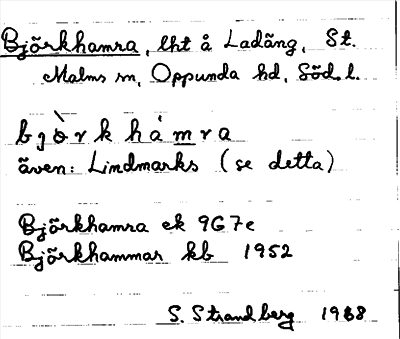 Björkhamra, lht å Ladäng, St.
Malms sn, Oppunda hd, Söd. l.
b j ö̀ r k h á m r a
även: Lindmarks (se detta)
Björkhamra ek 9G7e
Björkhammar kb 1952
S. Strandberg 1988